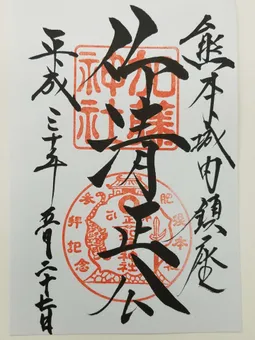 熊本城内鎮座
仰清正公
平成三十年五月二十七日
加藤
神社
参拝記念